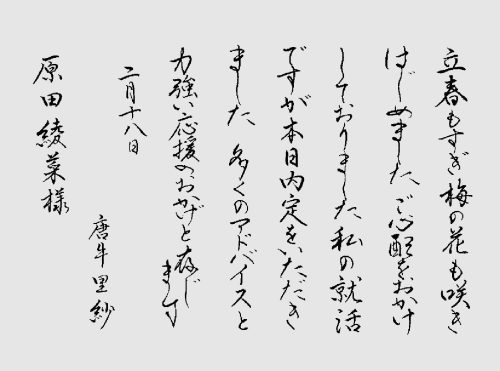 立春もすぎ梅の花も咲き
はじめました、ご心配をおかけ
しておりました私の就活
ですが本日内定をいただき
ました 多くのアドバイスと
力強い応援のおかげと存じ
ます
二月十八日
唐牛里紗
原田綾菜様